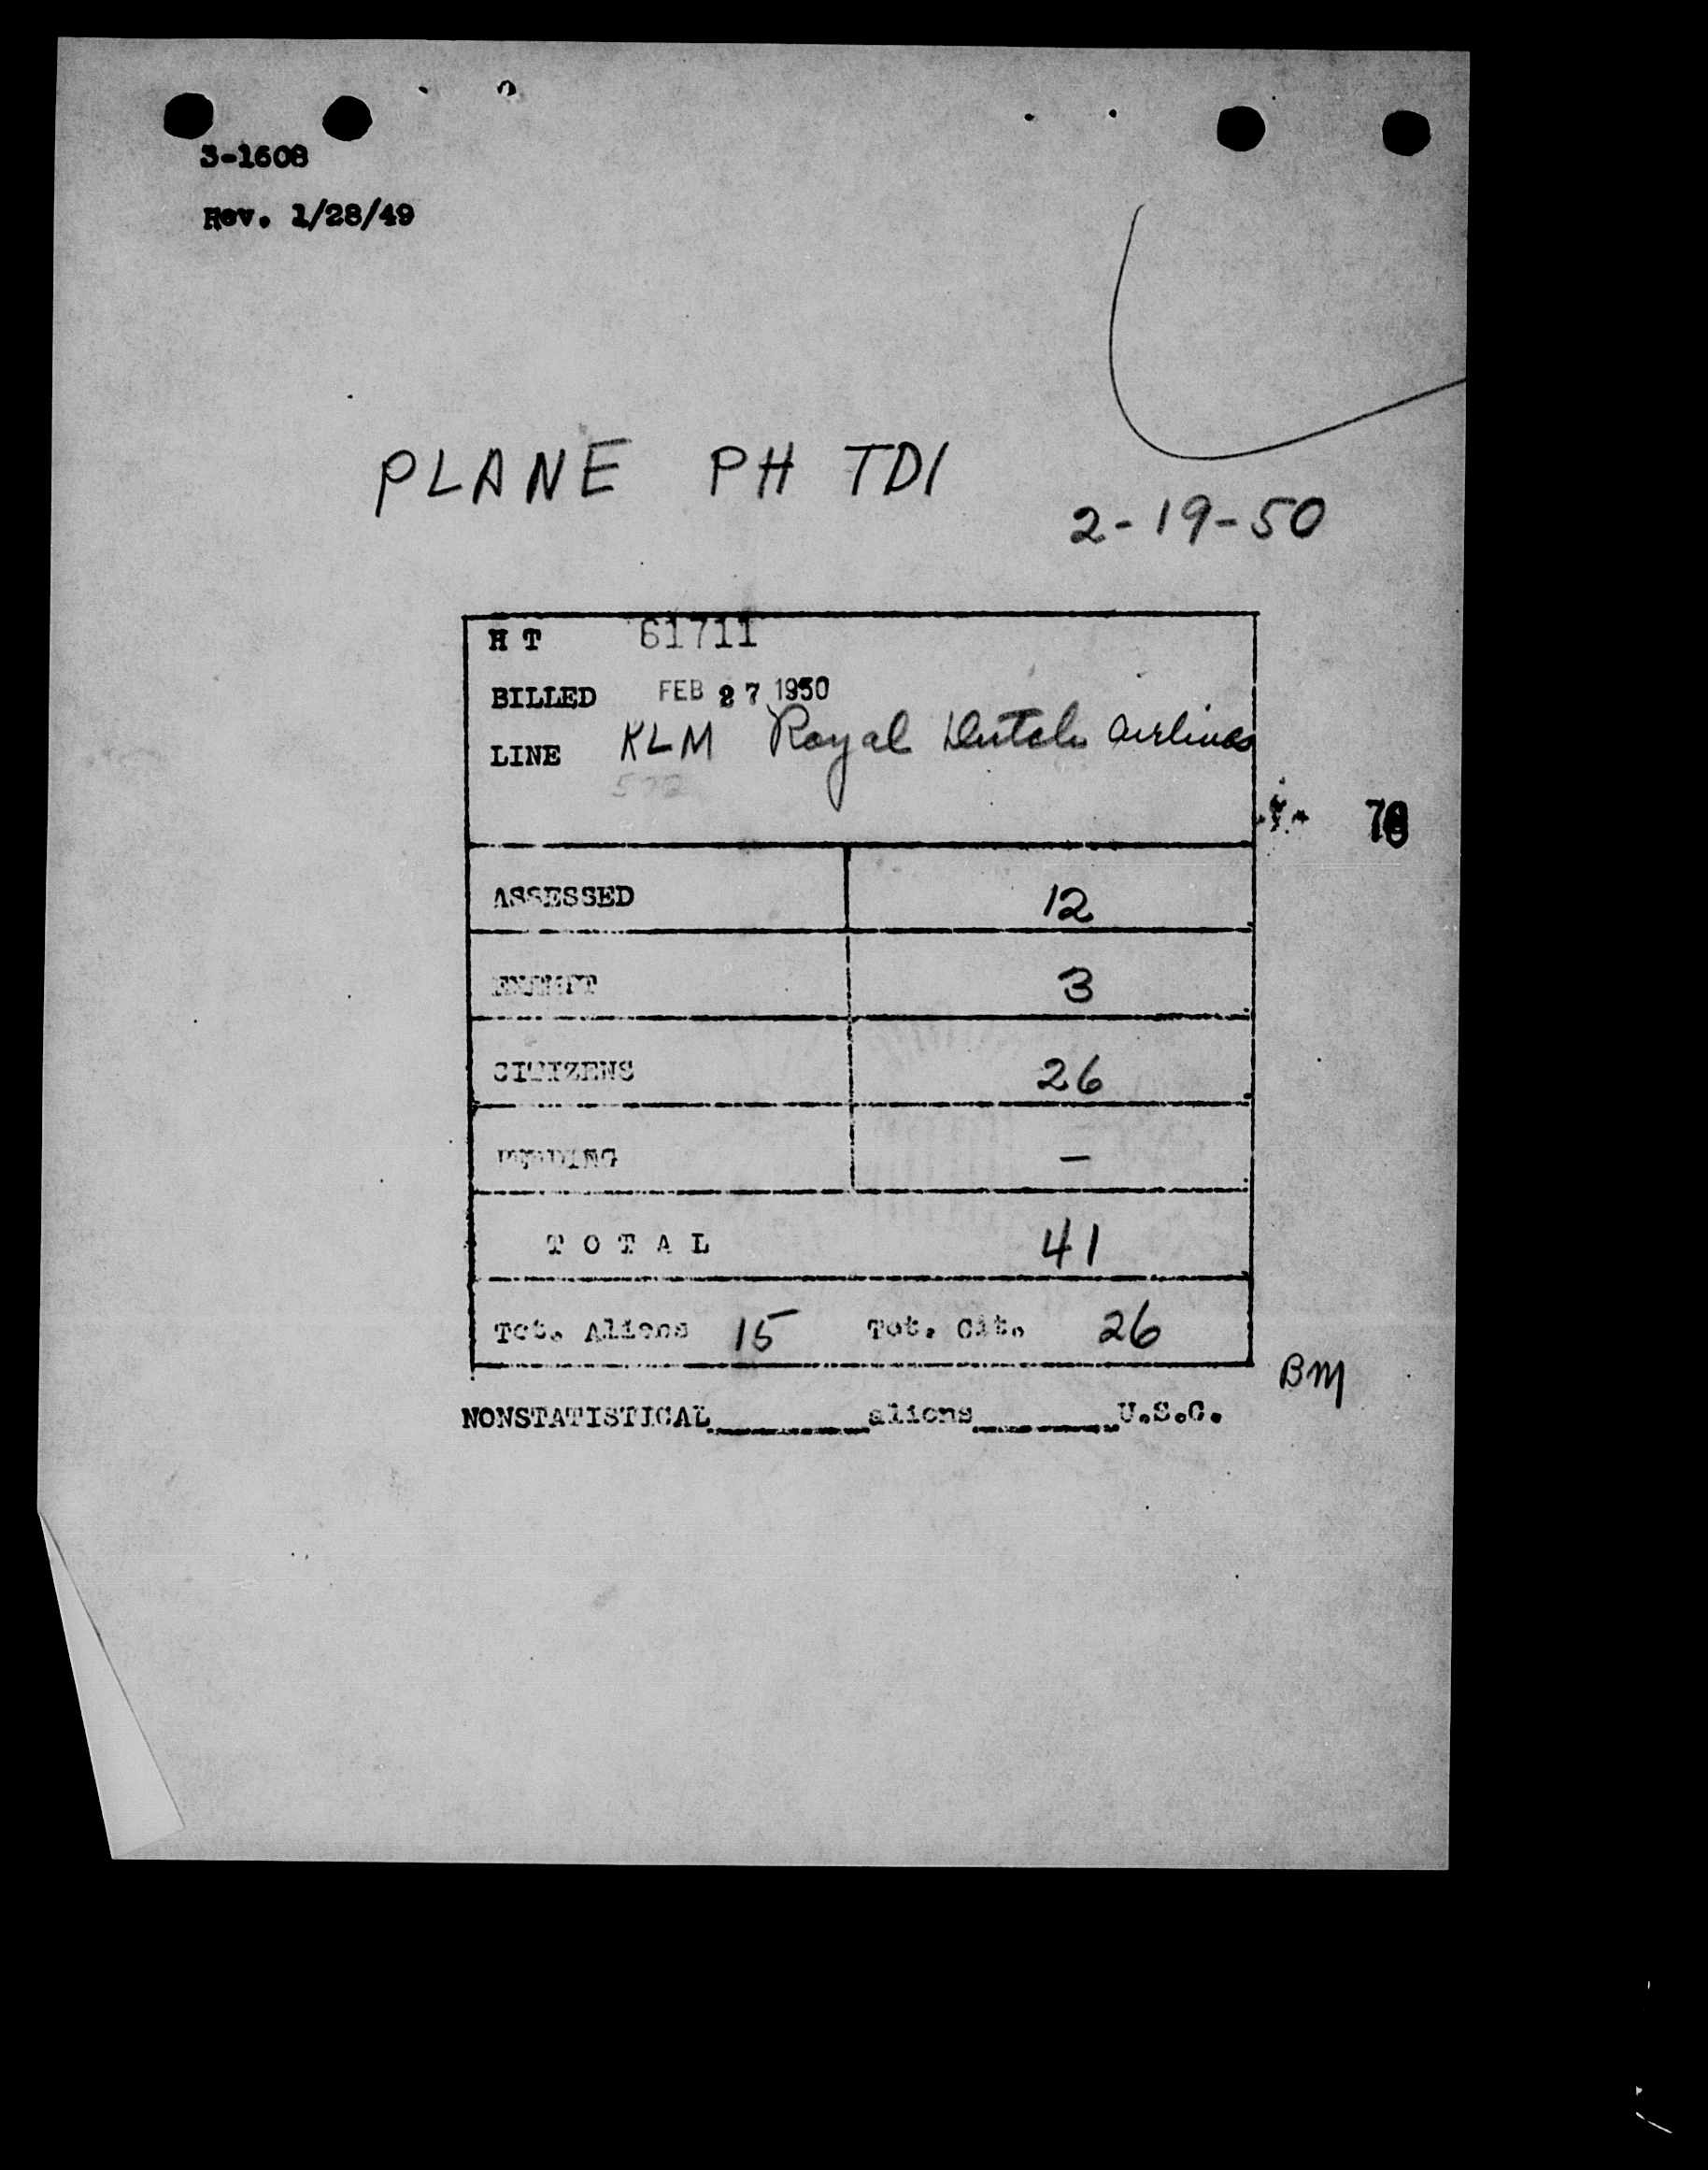 3-1608
Rev. 1/28/49
PLANE PH TDI
2-19-50
H T 61711
BILLED FEB 27 1950
LINE KLM Royal Dutch Airlines
ASSESSED 12
EXEMPT 3
CITIZENS 26
PENDING –
T O T A L 41
Tot. Aliens 15 Tot. Cit. 26
BM
NONSTATISTICAL__________aliens__________U.S.C.